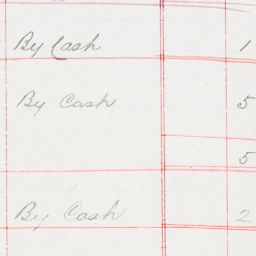 By Cash 1
By Cash 5
5
By Cash 2